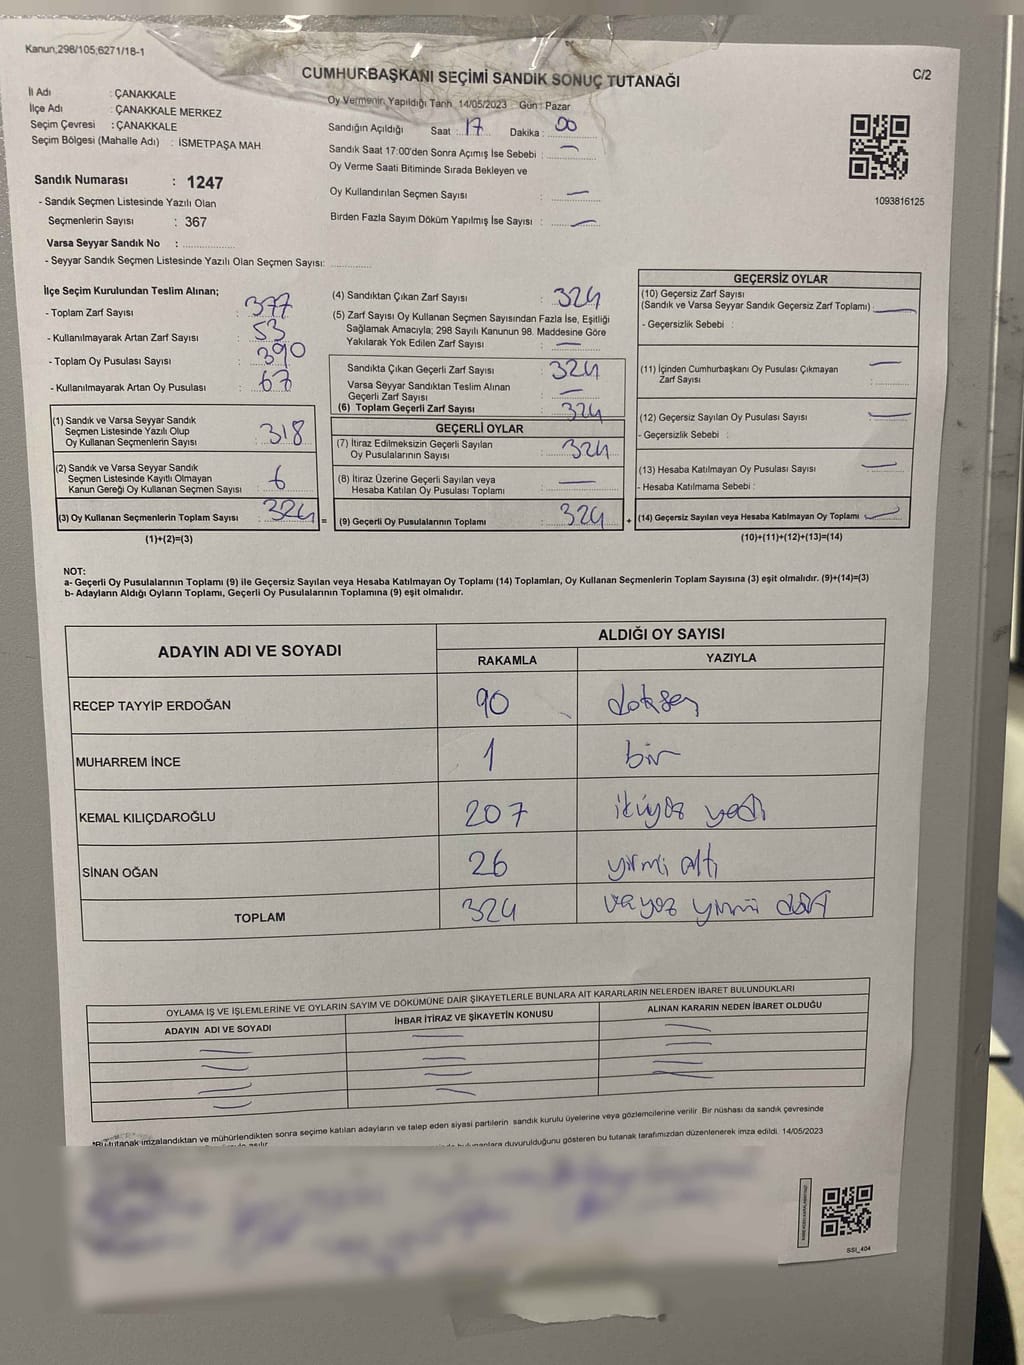 Kanun;298/105;6271/18-1
CUMHURBAŞKANI SEÇİMİ SANDIK SONUÇ TUTANAĞI
C/2
İl Adı : ÇANAKKALE
İlçe Adı : ÇANAKKALE MERKEZ
Seçim Çevresi : ÇANAKKALE
Seçim Bölgesi (Mahalle Adı) : İSMETPAŞA MAH.
Oy Vermenin Yapıldığı Tarih 14/05/2023 Gün : Pazar
Sandığın Açıldığı Saat : 17 Dakika : 00
Sandık Saat 17:00'den Sonra Açımış İse Sebebi : —
Oy Verme Saati Bitiminde Sırada Bekleyen ve
Oy Kullandırılan Seçmen Sayısı : —
Birden Fazla Sayım Döküm Yapılmış İse Sayısı : —
1093816125
Sandık Numarası : 1247
- Sandık Seçmen Listesinde Yazılı Olan
Seçmenlerin Sayısı : 367
Varsa Seyyar Sandık No :
- Seyyar Sandık Seçmen Listesinde Yazılı Olan Seçmen Sayısı:
İlçe Seçim Kurulundan Teslim Alınan;
- Toplam Zarf Sayısı : 377
- Kullanılmayarak Artan Zarf Sayısı : 53
- Toplam Oy Pusulası Sayısı : 390
- Kullanılmayarak Artan Oy Pusulası : 67
(1) Sandık ve Varsa Seyyar Sandık
Seçmen Listesinde Yazılı Olup
Oy Kullanan Seçmenlerin Sayısı : 318
(2) Sandık ve Varsa Seyyar Sandık
Seçmen Listesinde Kayıtlı Olmayan
Kanun Gereği Oy Kullanan Seçmen Sayısı : 6
(3) Oy Kullanan Seçmenlerin Toplam Sayısı : 324 =
(1)+(2)=(3)
(4) Sandıktan Çıkan Zarf Sayısı : 324
(5) Zarf Sayısı Oy Kullanan Seçmen Sayısından Fazla İse, Eşitliği
Sağlamak Amacıyla; 298 Sayılı Kanunun 98. Maddesine Göre
Yakılarak Yok Edilen Zarf Sayısı : —
Sandıkta Çıkan Geçerli Zarf Sayısı : 324
Varsa Seyyar Sandıktan Teslim Alınan
Geçerli Zarf Sayısı : —
(6) Toplam Geçerli Zarf Sayısı : 324
GEÇERLİ OYLAR
(7) İtiraz Edilmeksizin Geçerli Sayılan
Oy Pusulalarının Sayısı : 324
(8) İtiraz Üzerine Geçerli Sayılan veya
Hesaba Katılan Oy Pusulası Toplamı : —
(9) Geçerli Oy Pusulalarının Toplamı : 324 +
GEÇERSİZ OYLAR
(10) Geçersiz Zarf Sayısı
(Sandık ve Varsa Seyyar Sandık Geçersiz Zarf Toplamı) : —
- Geçersizlik Sebebi :
(11) İçinden Cumhurbaşkanı Oy Pusulası Çıkmayan
Zarf Sayısı : —
(12) Geçersiz Sayılan Oy Pusulası Sayısı : —
- Geçersizlik Sebebi :
(13) Hesaba Katılmayan Oy Pusulası Sayısı : —
- Hesaba Katılmama Sebebi :
(14) Geçersiz Sayılan veya Hesaba Katılmayan Oy Toplamı : —
(10)+(11)+(12)+(13)=(14)
NOT:
a- Geçerli Oy Pusulalarının Toplamı (9) ile Geçersiz Sayılan veya Hesaba Katılmayan Oy Toplamı (14) Toplamları, Oy Kullanan Seçmenlerin Toplam Sayısına (3) eşit olmalıdır. (9)+(14)=(3)
b- Adayların Aldığı Oyların Toplamı, Geçerli Oy Pusulalarının Toplamına (9) eşit olmalıdır.
ADAYIN ADI VE SOYADI
ALDIĞI OY SAYISI
RAKAMLA YAZIYLA
RECEP TAYYİP ERDOĞAN 90 doksan
MUHARREM İNCE 1 bir
KEMAL KILIÇDAROĞLU 207 ikiyüz yedi
SİNAN OĞAN 26 yirmi altı
TOPLAM 324 yirmi dört
OYLAMA İŞ VE İŞLEMLERİNE VE OYLARIN SAYIM VE DÖKÜMÜNE DAİR ŞİKAYETLERLE BUNLARA AİT KARARLARIN NELERDEN İBARET BULUNDUKLARI
ADAYIN ADI VE SOYADI İHBAR İTİRAZ VE ŞİKAYETİN KONUSU ALINAN KARARIN NEDEN İBARET OLDUĞU
*Bu tutanak imzalandıktan ve mühürlendikten sonra seçime katılan adayların ve talep eden siyasi partilerin sandık kurulu üyelerine veya gözlemcilerine verilir. Bir nüshası da sandık çevresinde
duyurulduğunu gösteren bu tutanak tarafımızdan düzenlenerek imza edildi. 14/05/2023
SSI_404